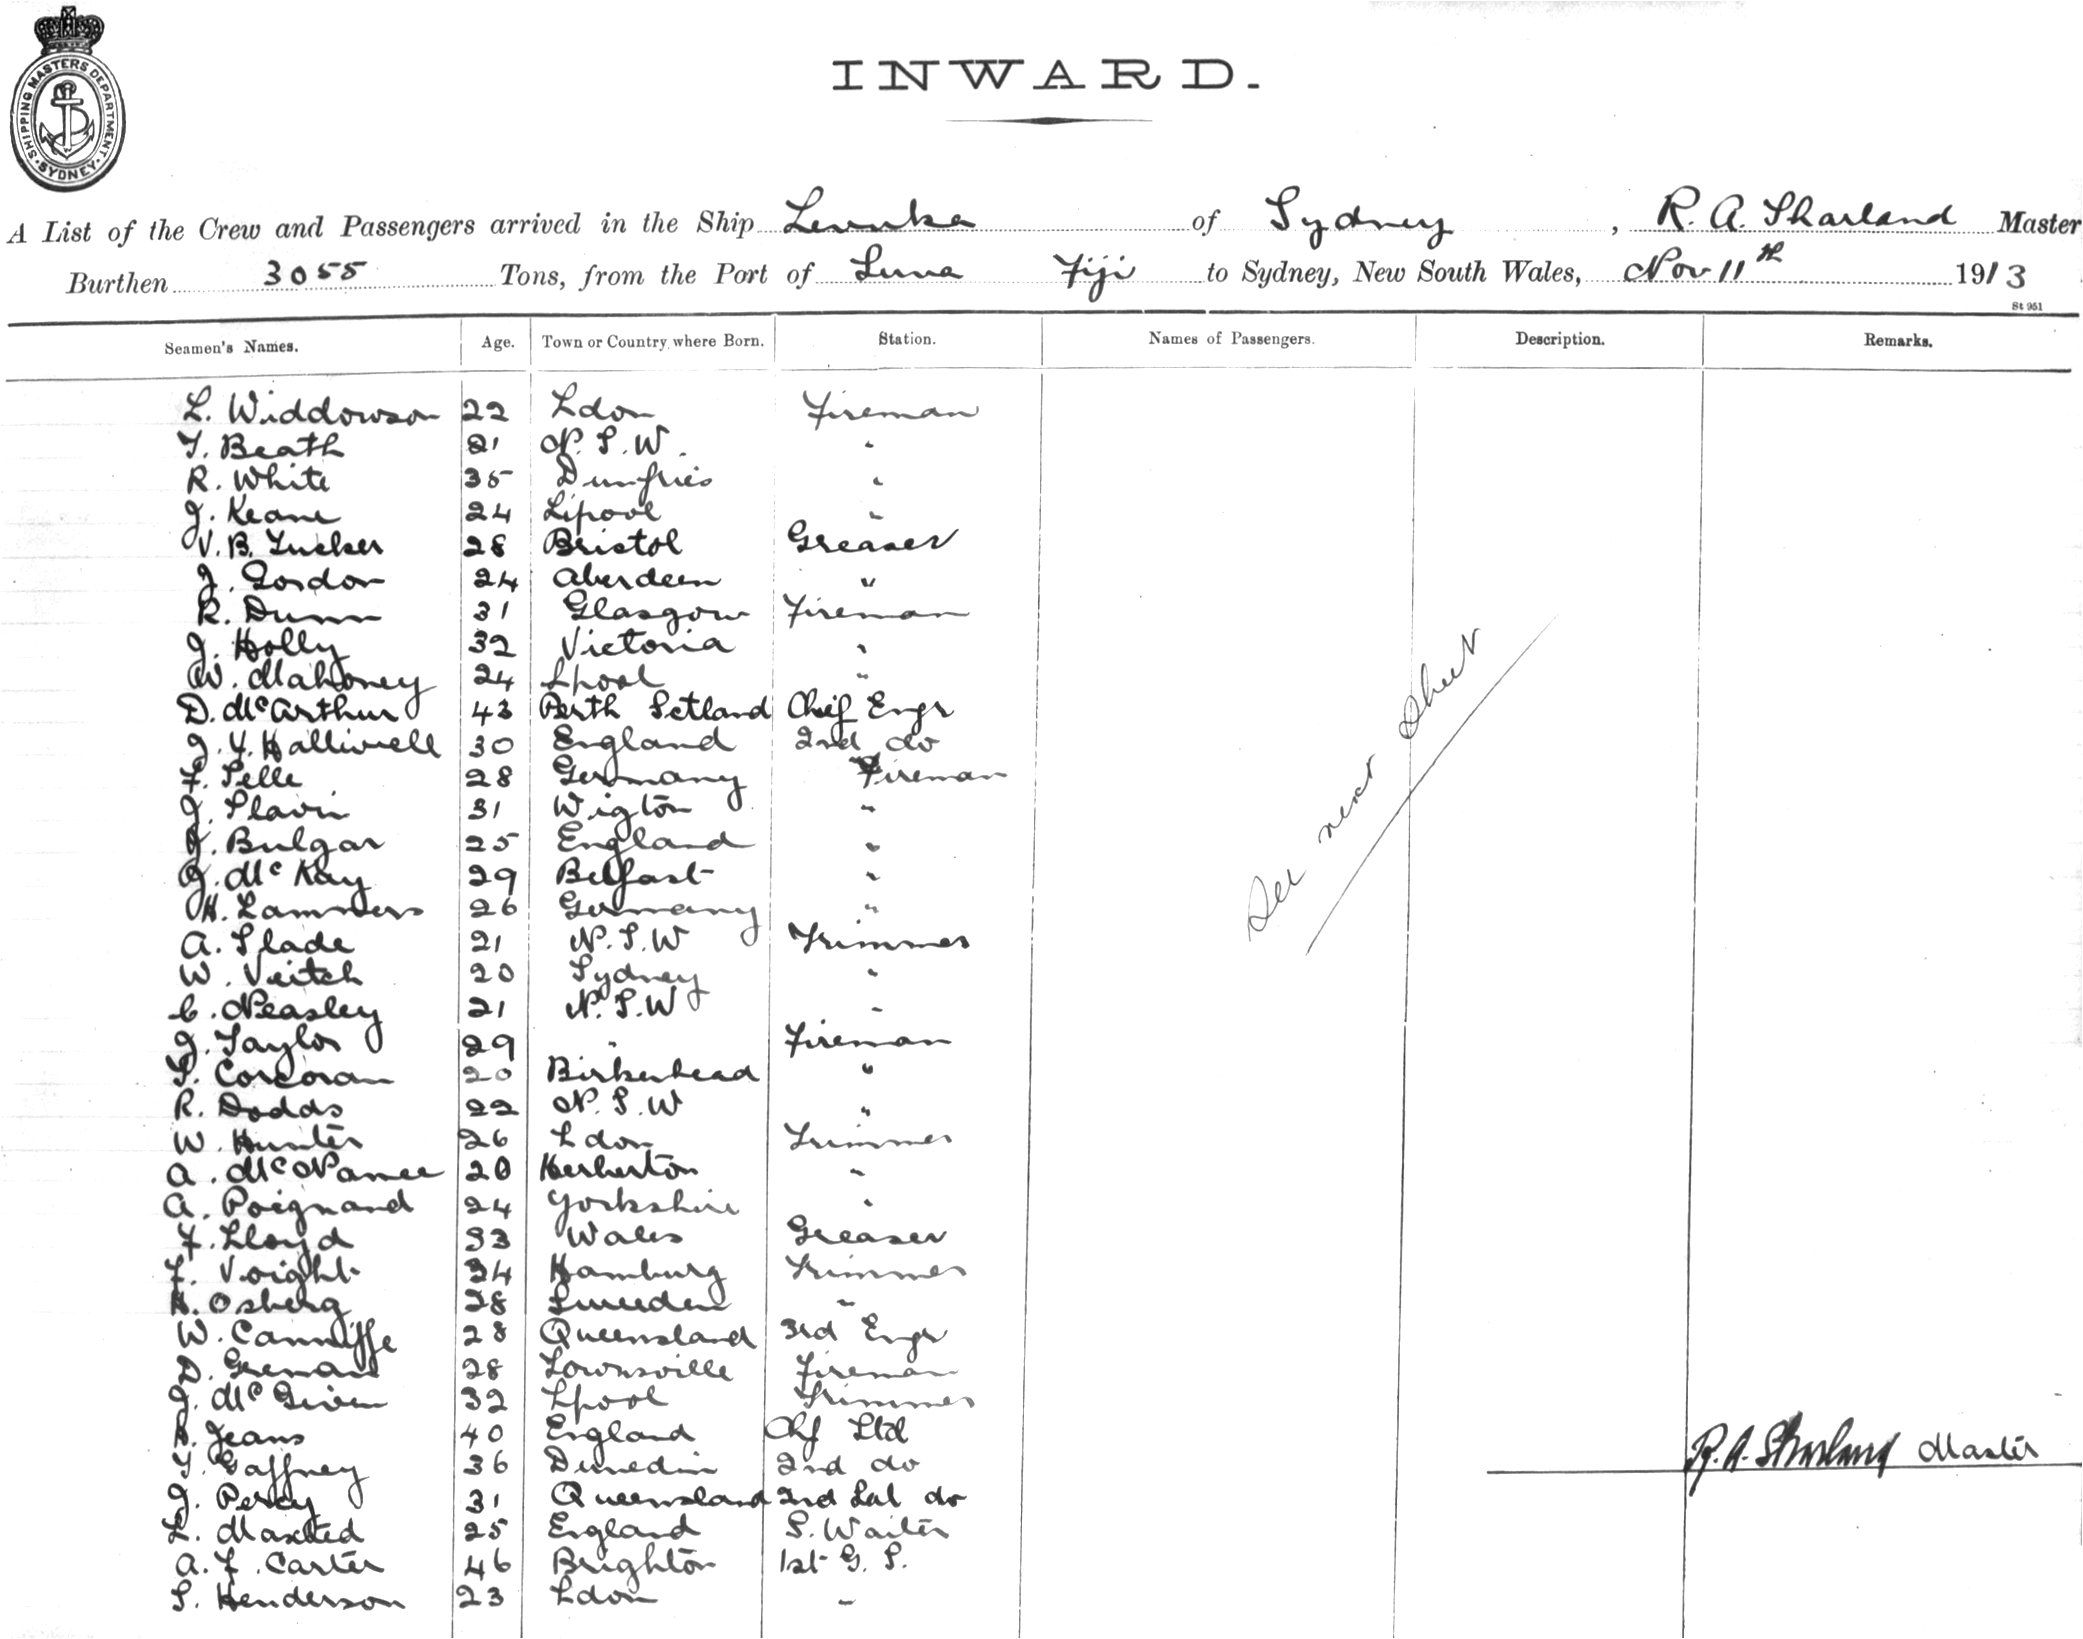 SHIPPING MASTERS DEPARTMENT. SYDNEY
INWARD.
A List of the Crew and Passengers arrived in the Ship Levuka of Sydney, R. A. Sharland Master
Burthen 3055 Tons, from the Port of Suva Fiji to Sydney, New South Wales, Nov 11th 1913
St 951
Seamen's Names. Age. Town or Country where Born. Station. Names of Passengers. Description. Remarks.
L. Widdowson 22 Ldon Fireman
T. Beath 21 N. S. W. "
R. White 35 Dumfries "
J. Keane 24 Lipool "
V. B. Tucker 28 Bristol Greaser
J. Gordon 24 Aberdeen "
R. Dunn 31 Glasgow Fireman
J. Holly 32 Victoria "
W. Mahoney 24 Lpool "
D. McArthur 43 Perth Setland Chief Engr
J. Y. Halliwell 30 England 2nd do
F. Selle 28 Germany Fireman
J. Slavin 31 Wigton "
J. Bulgar 25 England "
J. McKay 29 Belfast "
H. Lammers 26 Germany "
A. Slade 21 N. S. W Trimmer
W. Veitch 20 Sydney "
C. Neasley 21 N. S. W "
J. Taylor 29 " Fireman
S. Corcoran 20 Birkenhead "
R. Dodds 22 N. S. W "
W. Hunter 26 Ldon Trimmer
A. McNamee 20 Herberton "
A. Poignand 24 Yorkshire "
F. Lloyd 33 Wales Greaser
F. Voight 34 Hamburg Trimmer
H. Osberg 28 Sweeden "
W. Canniffe 28 Queensland 3rd Engr
D. Greenan 28 Townsville Fireman
J. McGiven 32 Lpool Trimmer
B. Jeans 40 England Chf Std
T. Gaffney 36 Dunedin 2nd do
J. Percy 31 Queensland 2nd Sal do
L. Maxted 25 England S. Waiter
A. F. Carter 46 Brighton 1st G. S.
S. Henderson 23 Ldon "
See next sheet
R. A. Sharland Master